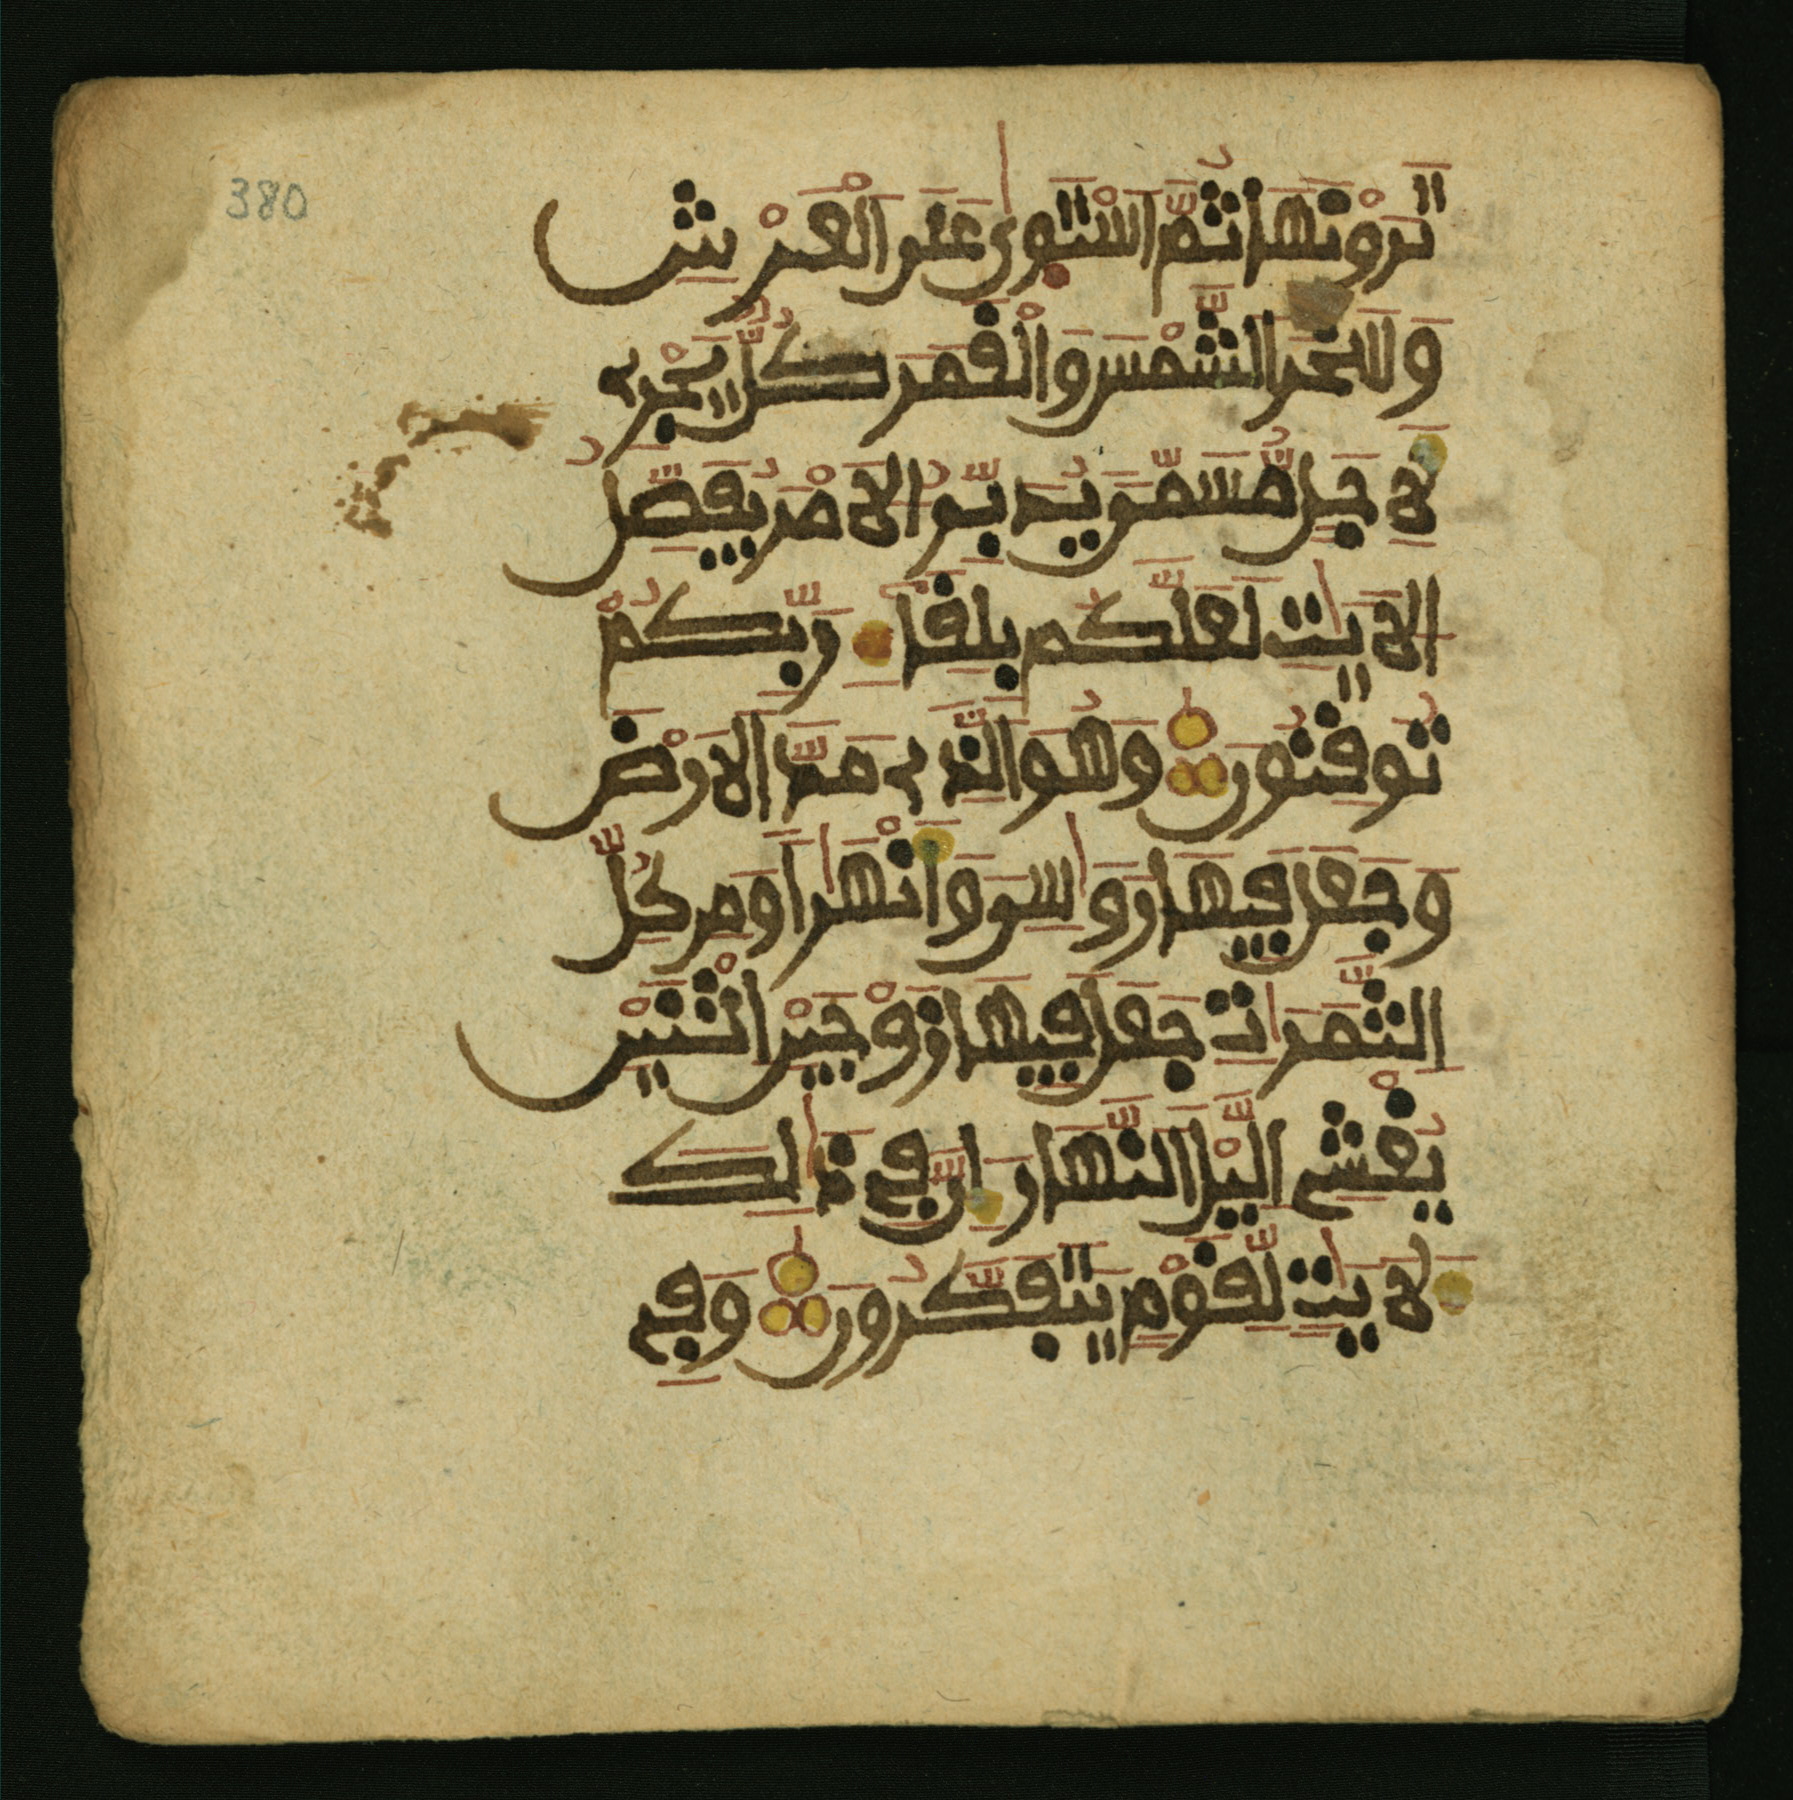 380
تَرَوْنَهَا ثُمَّ اَسْتَوٰى عَلَى اَلْعَرْشِ
وَسَخَّرَ اَلشَّمْسَ وَالْقَمَرَ كُلٌّ يَجْرِے
لِأَجَلٍ مُّسَمًّى يُدَبِّرُ اُلْأَمْرَ يُفَصِّلُ
اُلْأَيَٰتِ لَعَلَّكُم بِلِقَآءِ رَبِّكُمْ
تُوقِنُونَ وَهُوَ اَلَّذِے مَدَّ اَلْأَرْضَ
وَجَعَلَ فِيهَا رَوَٰسِىَ وَأَنْهَٰرًا وَمِن كُلِّ
اِلثَّمَرَٰتِ جَعَلَ فِيهَا زَوْجَيْنِ اِثْنَيْنِ
يُغْشِى اِلَّيْلَ اَلنَّهَارَ إِنَّ فِى ذَٰلِكَ
لَأَيَٰتٍ لِّقَوْمٍ يَتَفَكَّرُونَ وَفِى